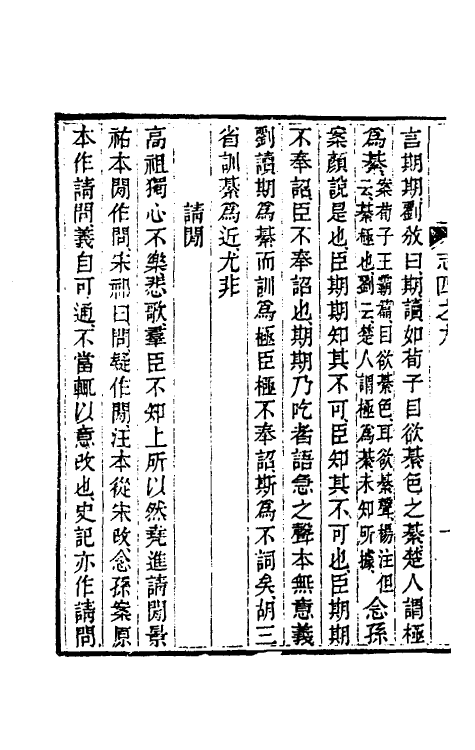 志四之九
言期期劉攽曰期讀如荀子目欲綦色之綦楚人謂極
爲綦案荀子王霸篇目欲綦色耳欲綦聲楊注但云綦極也劉云楚人謂極爲綦未知所據念孫
案顏說是也臣期期知其不可臣知其不可也臣期期
不奉詔臣不奉詔也期期乃吃者語急之聲本無意義
劉讀期爲綦而訓爲極臣極不奉詔斯爲不詞矣胡三
省訓綦爲近尤非
請閒
高祖獨心不樂悲歌羣臣不知上所以然堯進請閒景
祐本閒作問宋祁曰問疑作閒汪本從宋改念孫案原
本作請問義自可通不當輒以意改也史記亦作請問